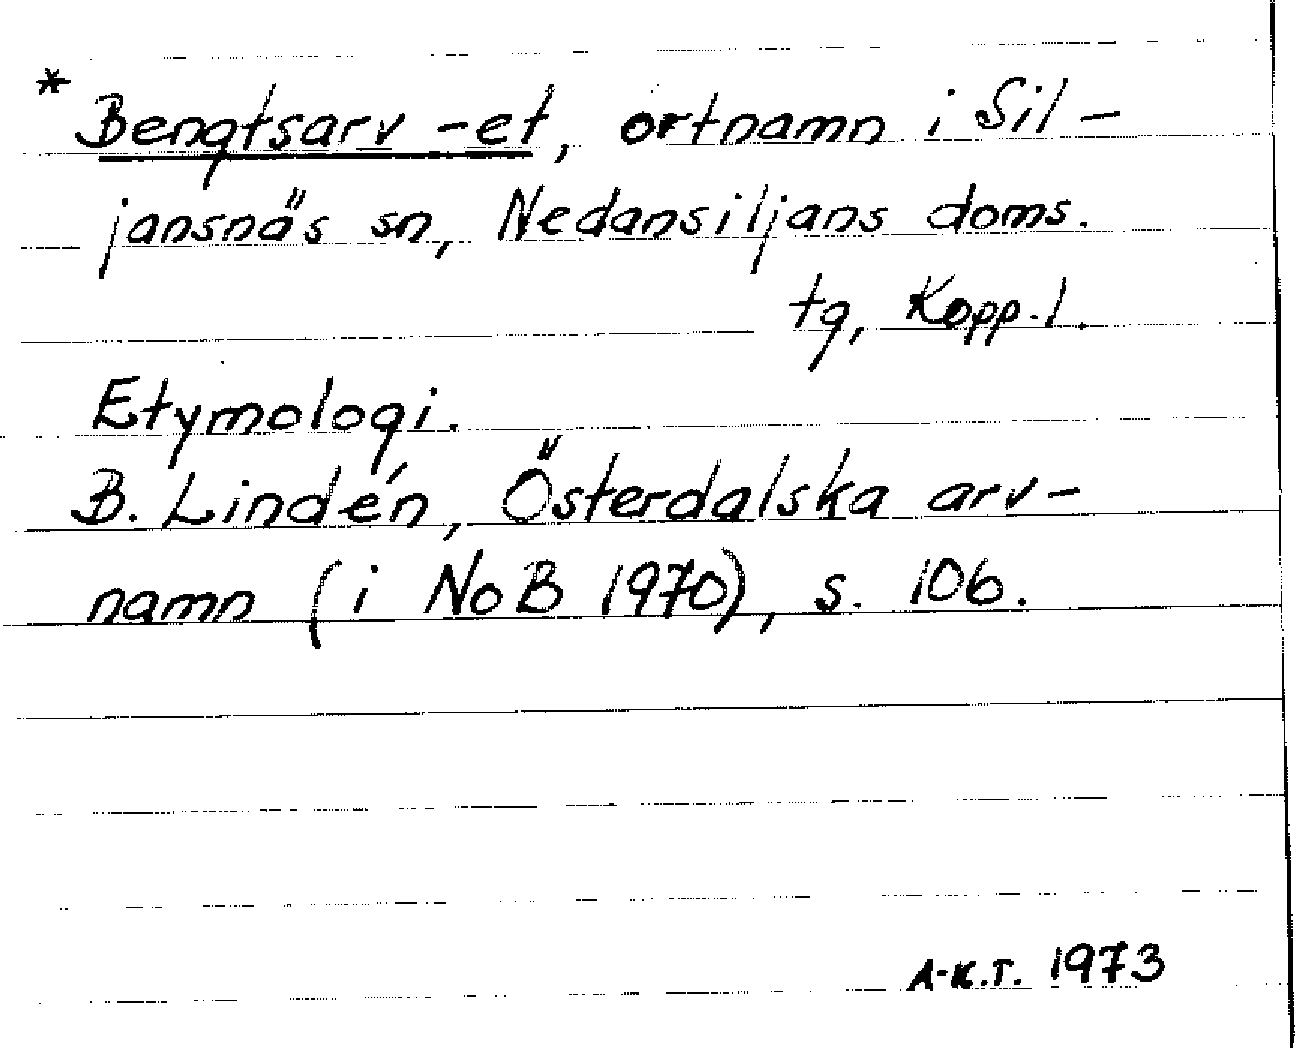 * Bengtsarv -et, ortnamn i Sil-
jansnäs sn, Nedansiljans doms.
tg, Kopp. l.
Etymologi.
B. Lindén, Österdalska arv-
namn (i NoB 1970), s. 106.
A-K.T. 1973